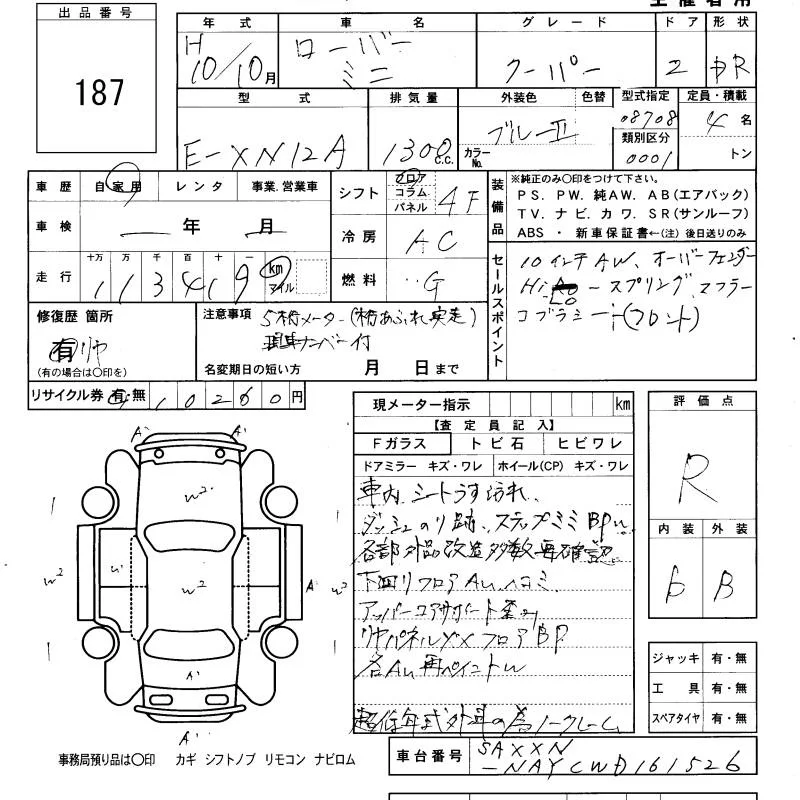 出品番号
187
年式
H
10/10月
車名
ローバー
ミニ
グレード
クーパー
ドア
2
形状
型式
E-XN12A
排気量
1300 C.C.
外装色
ブルーⅡ
色替
カラーNo.
型式指定
08708
類別区分
0001
定員・積載
4名
トン
車歴
自家用
レンタ
事業.営業車
シフト
フロア
コラム
パネル
4F
装備品
※純正のみ〇印をつけて下さい。
PS. PW. 純AW. AB(エアバック)
TV. ナビ. カワ. SR(サンルーフ)
ABS ・ 新車保証書←(注) 後日送りのみ
車検
― 年 ― 月
冷房
AC
走行
十万
万
千
百
十
一
113419
km
マイル
燃料
G
セールスポイント
10インチAW、オーバーフェンダー
Hi Lo ースプリング、マフラー
コブラシート(フロント)
修復歴 箇所
有 リヤ
(有の場合は〇印を)
注意事項
5桁メーター(桁あふれ実走)
ナンバー付
名変期日の短い方 月 日まで
リサイクル券 有・無 10260円
現メーター指示 km
【査定員記入】
Fガラス
トビ石
ヒビワレ
ドアミラー キズ・ワレ
ホイール(CP) キズ・ワレ
車内、シートうす汚れ、
ダッシュのり跡、ステップミミBPu
各部外品改造多数要確認
下回りフロアAu、ヘコミ、
アッパーコアサポート歪み
リヤパネルYXフロアBP
各Au再ペイントu
超低年式外車の為ノークレーム
評価点
R
内装
外装
b
B
ジャッキ 有・無
工具 有・無
スペアタイヤ 有・無
A'
A'
W2
W2
U'
W2
A'
W2
A'
A'
事務局預り品は〇印 カギ シフトノブ リモコン ナビロム
車台番号
SAXXN
-NAYCWD161526